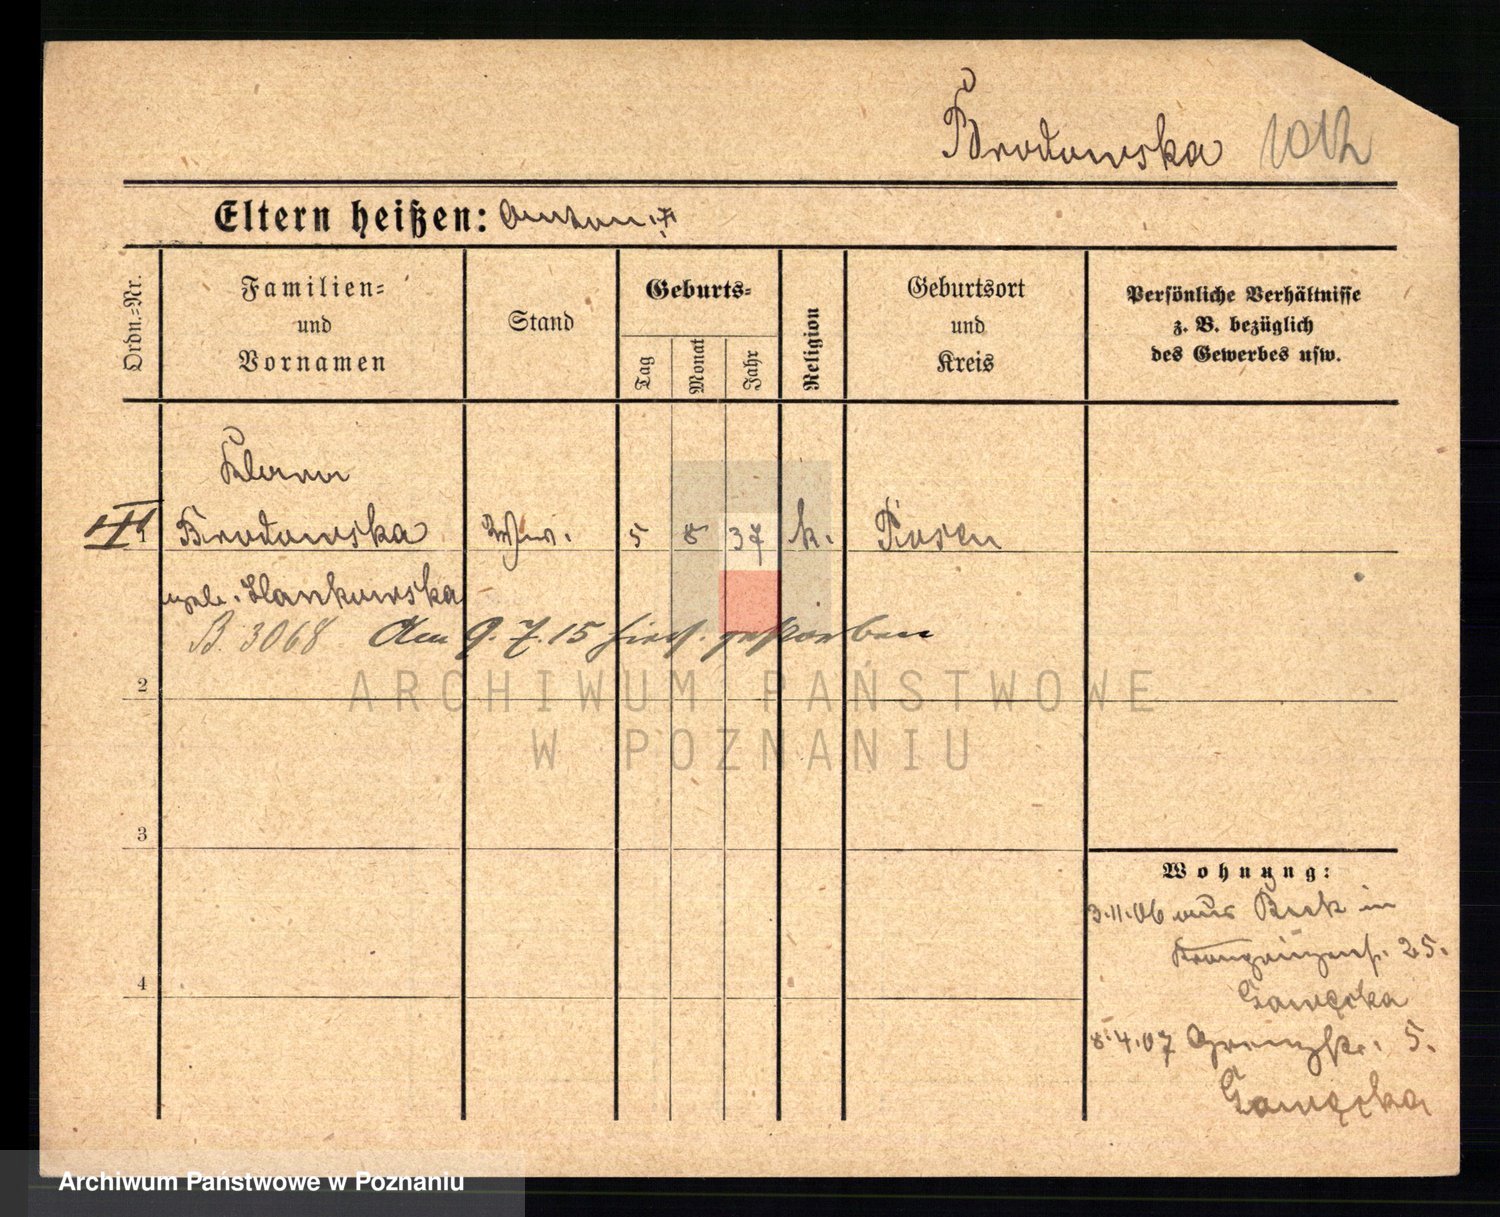 Brodowska
Eltern heißen: Anton
Ordn.-Nr.
Familien-
und
Vornamen
Stand
Geburts-
Tag
Monat
Jahr
Religion
Geburtsort
und
Kreis
Persönliche Verhältnisse
z. B. bezüglich
des Gewerbes usw.
1
Brodowska 5 8 37 k. Posen
B. 3068 Am 9.7.15 gestorben
2
3
4
Wohnung:
3.11.06 aus in
Kronprinzenstr. 25.
Gawęcka
8.4.07 Grenzstr. 5.
Gawęcka
ARCHIWUM PAŃSTWOWE
W POZNANIU
Archiwum Państwowe w Poznaniu